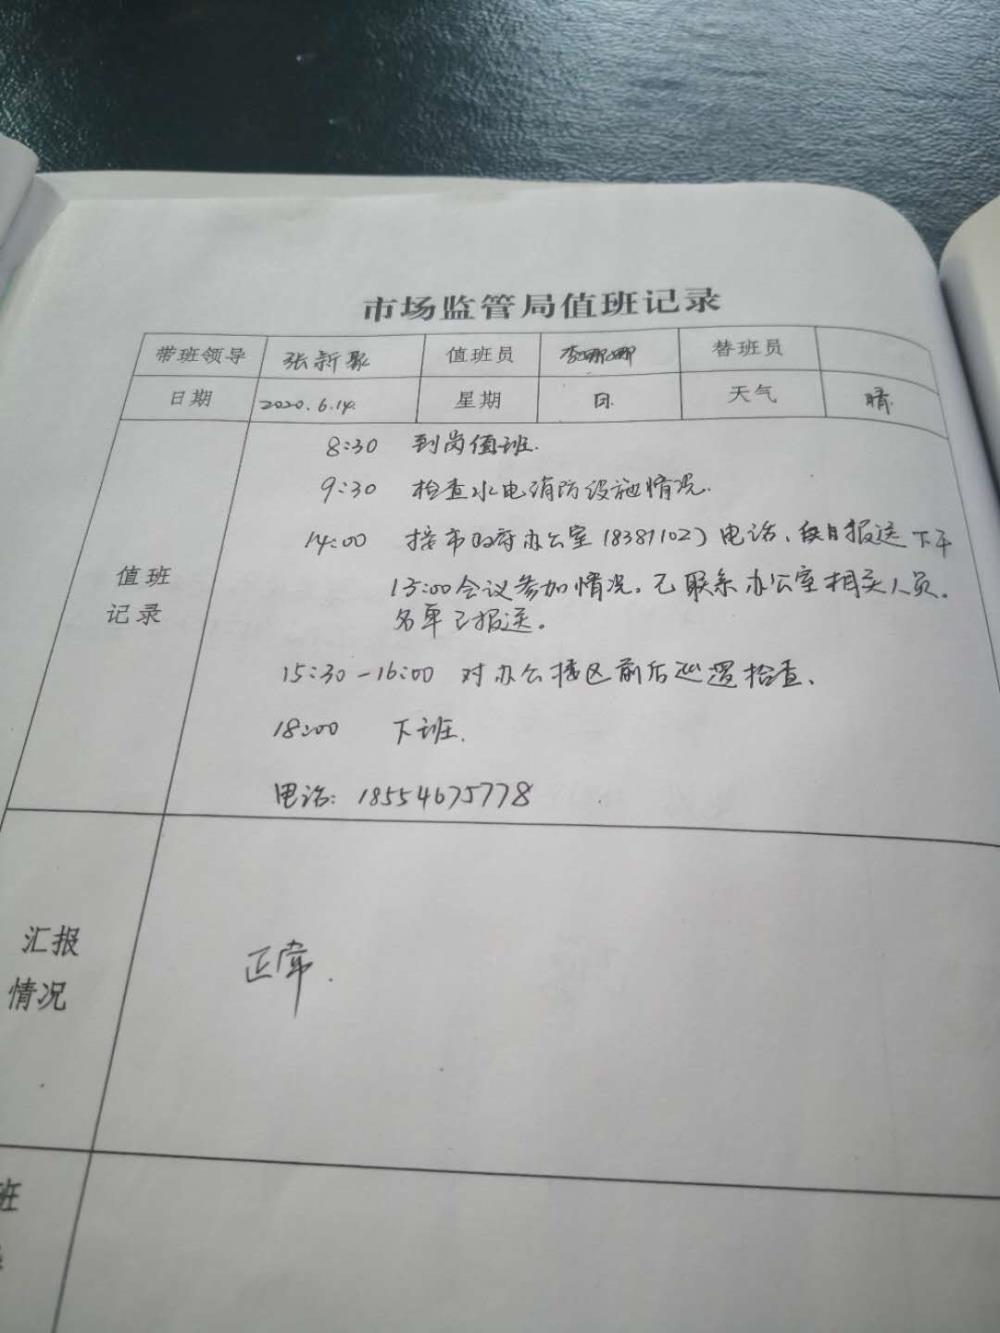 市场监管局值班记录
带班领导 张新聚 值班员 李娜娜 替班员
日期 2020.6.14. 星期 日. 天气 晴.
8:30 到岗值班.
9:30 检查水电消防设施情况.
14:00 接市政府办公室(8381102)电话、报送下午
15:00会议参加情况。已联系办公室相关人员。
值班
记录
名单已报送。
15:30-16:00 对办公楼区前后巡逻检查、
18:00 下班.
电话: 18554675778
汇报
情况
正常.
班